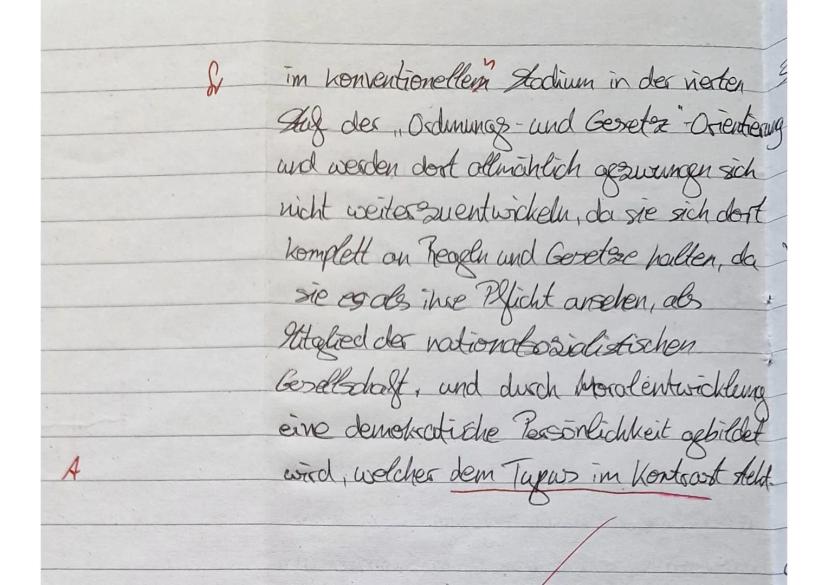 Gr im konventionellem n Stadium in der vierten
Stufe der „Ordnungs- und Gesetz"-Orientierung
und werden dort allmählich gezwungen sich
nicht weiterzuentwickeln, da sie sich dort
komplett an Regeln und Gesetze halten, da
sie es als ihre Pflicht ansehen, als
Mitglied der nationalsozialistischen
Gesellschaft, und durch Moralentwicklung
eine demokratische Persönlichkeit gebildet
A wird, welcher dem Typus im Kontrast steht.